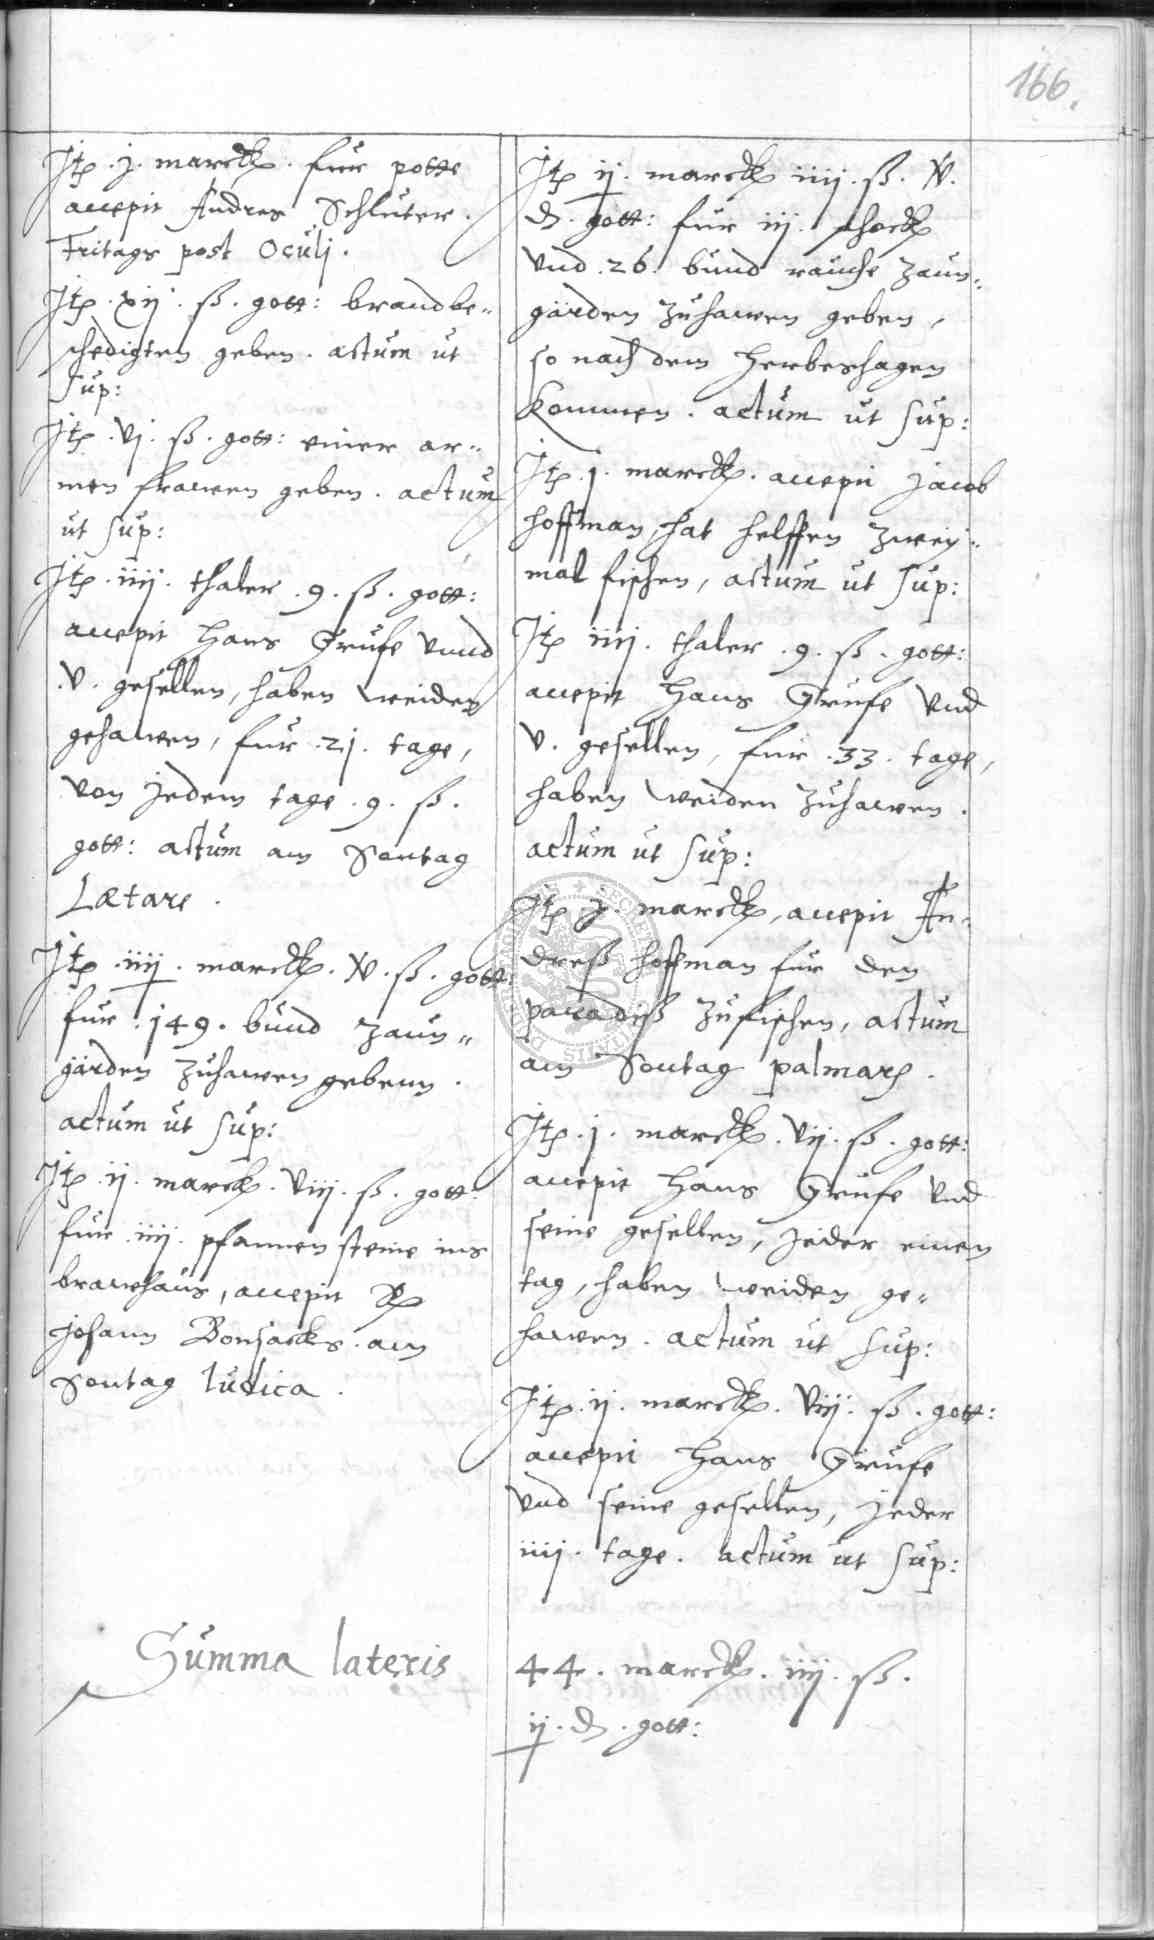 166.
Jtem .j. marck. fur potte
accepit Andres Schluter.
Fritags post Oculi.
Jtem .xij. ß. gott: brandbe„
schedigten geben. actum ut
sup:
Jtem .vj. ß. gott: einer ar„
men frawen geben. actum
ut sup:
Jtem .iiij. thaler .9. ß. gott:
accepit Hans Grufe vnnd
.v. gesellen, haben weiden
gehawen, fur .21. tage,
von jedem tage .9. ß.
gott: actum am Sontag
Lætare.
Jtem .iiij. marck. xv. ß. gott:
fur .149. bund zaun„
gärden zuhawen gebenn.
actum ut sup:
Jtem .ij. marck. viij. ß. gott:
fur .iiij. pfannen steine ins
brawhaus, accepit
Johann Bonsack. am
Sontag Iudica.
Jtem ij. marck iiij. ß. xv.
d. gott: fur iij. schock
vnd .26. bund rauche zaun„
gärden zuhawen geben,
so nach dem Herbeshagen
kommen. actum ut sup:
Jtem .j. marck. accepit Jacob
Hoffman, hat helffen zwey„
mal fischen, actum ut sup:
Jtem iiij. thaler .9. ß. gott:
accepit Hans Grufe vnd
v. gesellen, fur .33. tage,
haben weiden zuhawen.
actum ut sup:
Jtem .j. marck, accepit An„
dreß Hoffman fur den
paradiß zufischen, actum
am Sontag palmarum.
Jtem .j. marck. vij. ß. gott:
accepit Hans Grufe vnd
seine gesellen, jeder einen
tag, haben weiden ge„
hawen. actum ut sup:
Jtem .ij. marck. viij. ß. gott:
accepit Hans Grufe
vnd seine gesellen, jeder
iiij. tage. actum ut sup:
Summa lateris
44. marck. iiij. ß.
ij. d. gott: